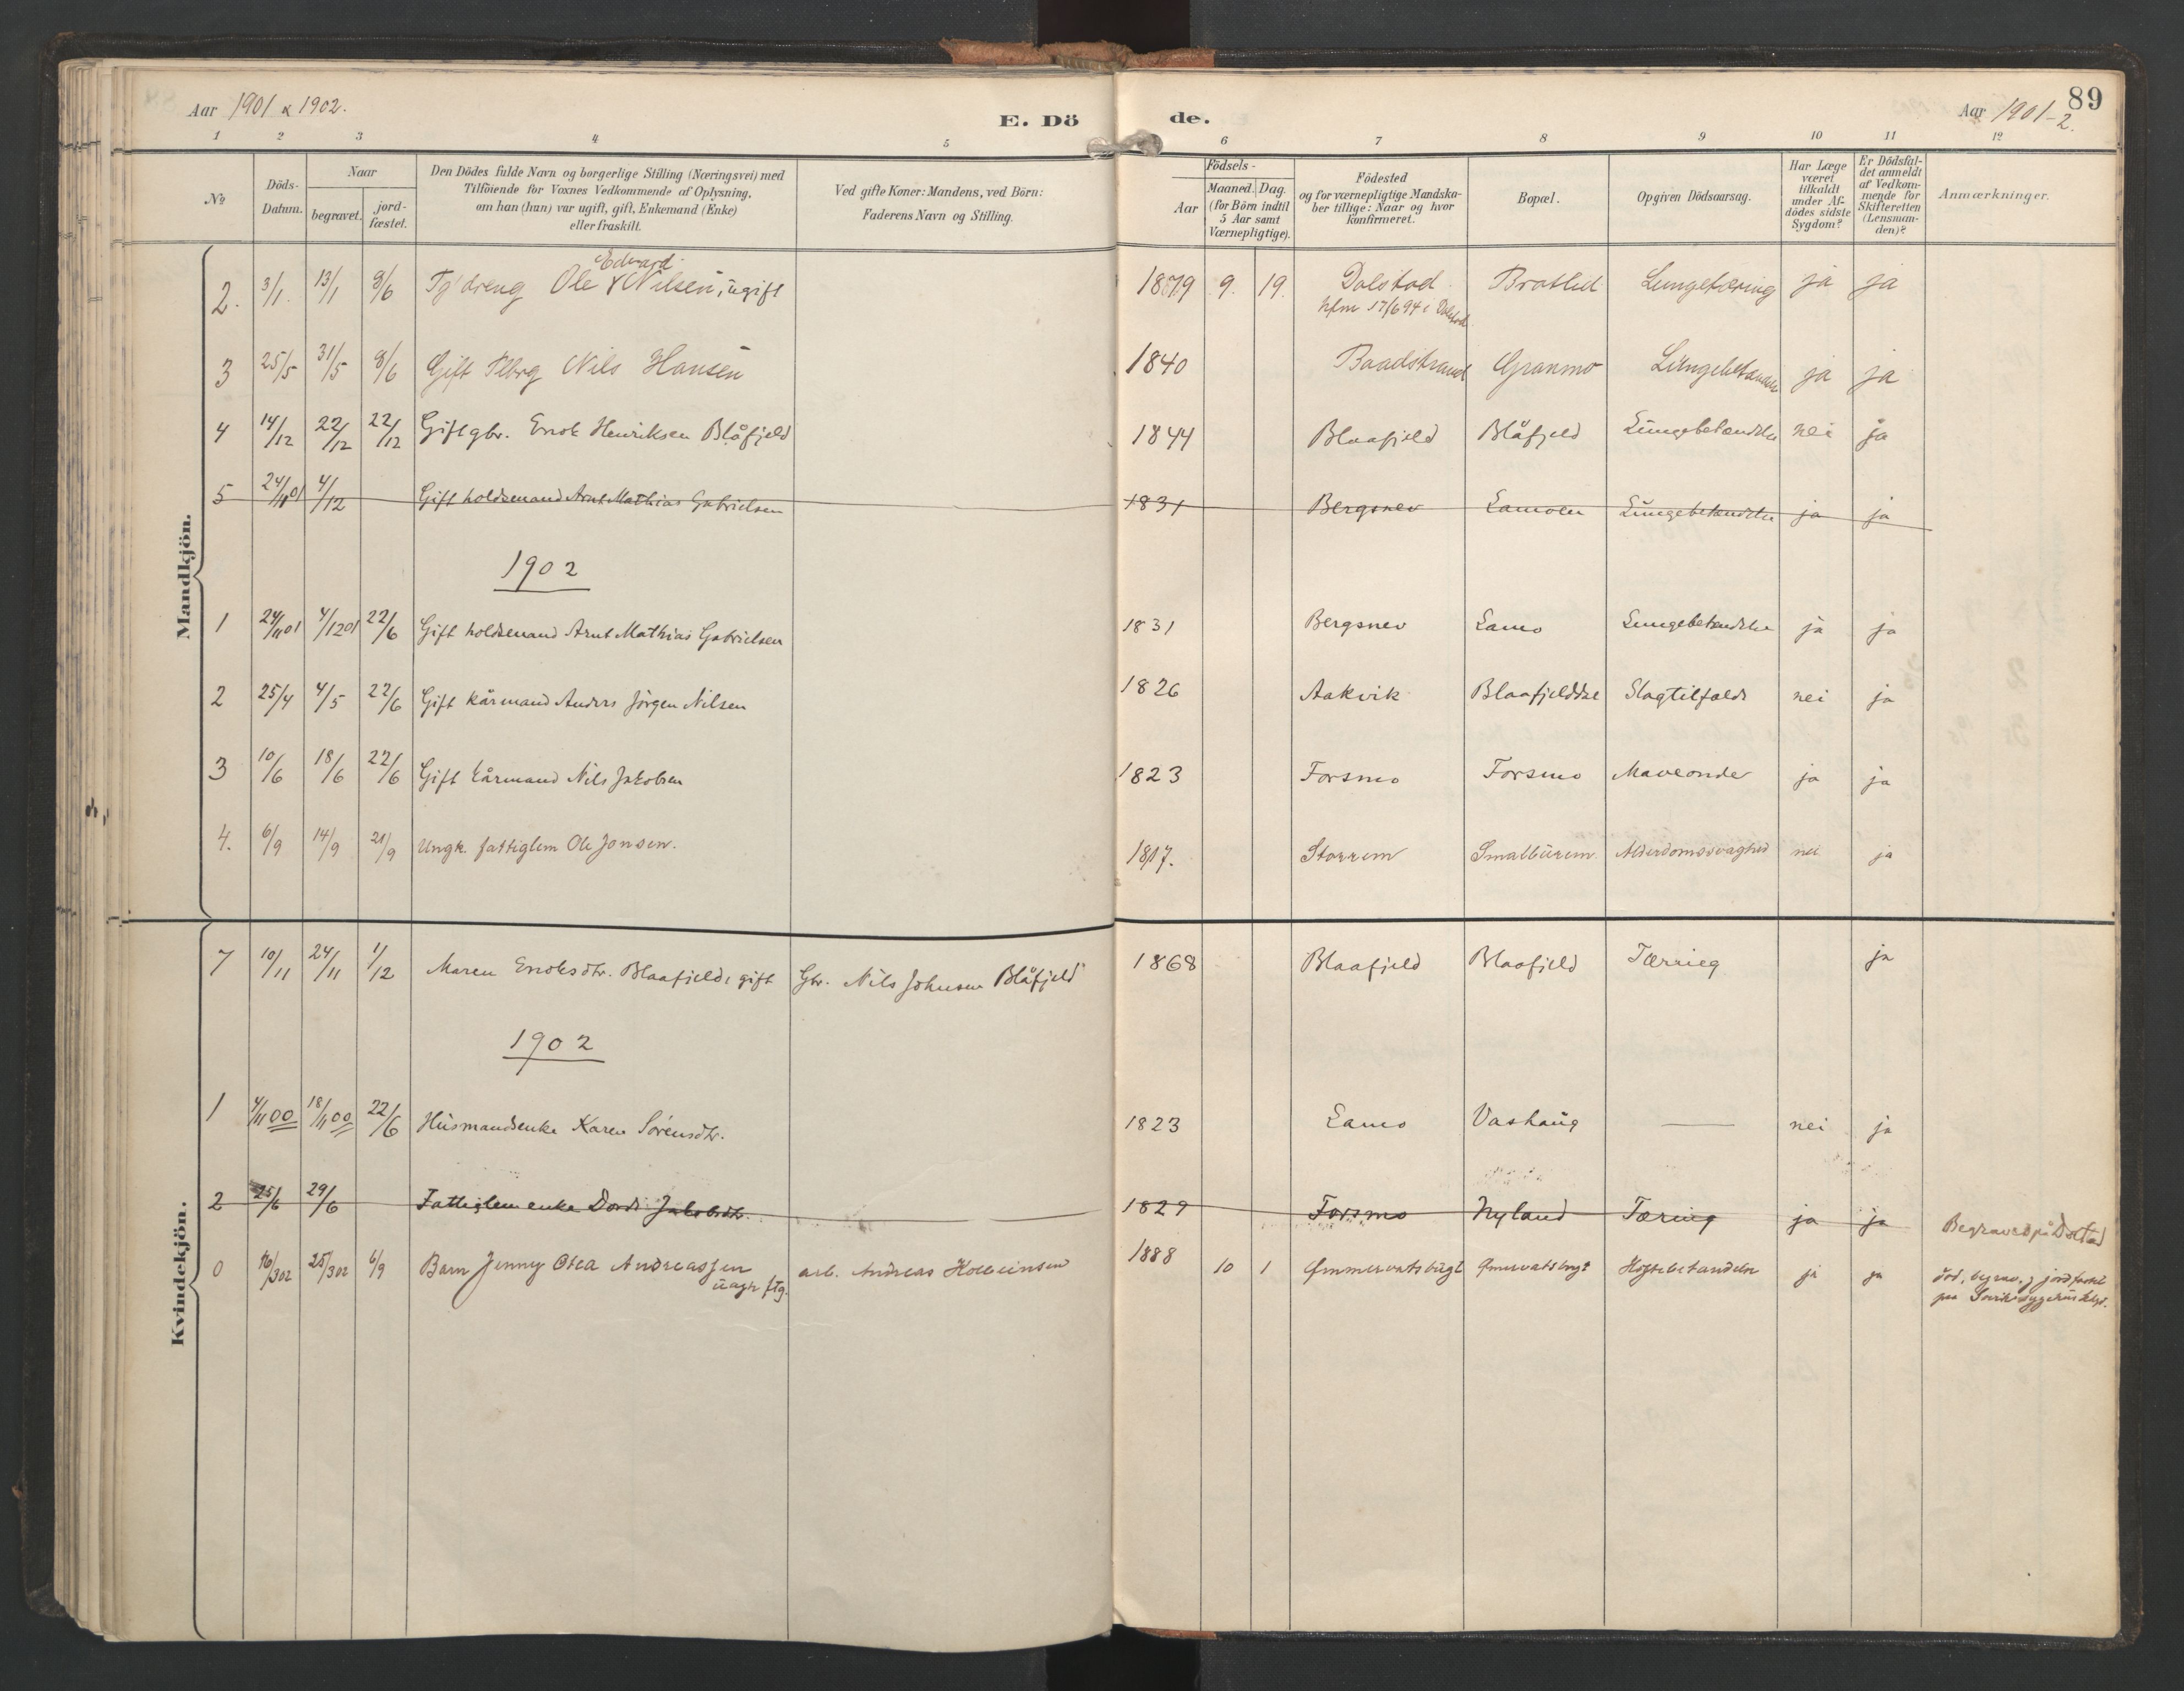 Aar 1901 & 1902.
E. Dö
de.
Aar 1901-2.
89
1 2 3 4 5 6 7 8 9 10 11 12
No
Döds-Datum.
Naar
begravet.
jord-fæstet.
Den Dödes fulde Navn og borgerlige Stilling (Næringsvei) med
Tilföiende for Voxnes Vedkommende af Oplysning,
om han (hun) var ugift, gift, Enkemand (Enke)
eller fraskilt.
Ved gifte Koner: Mandens, ved Börn:
Faderens Navn og Stilling.
Födsels-
Aar
Maaned. Dag.
(for Börn indtil
5 Aar samt
Værnepligtige).
Födested
og for værnepligtige Mandska-
ber tillige: Naar og hvor
konfirmeret.
Bopæl.
Opgiven Dödsaarsag.
Har Læge
været
tilkaldt
under Af-
dödes sidste
Sygdom?
Er Dödsfal-
det anmeldt
af Vedkom-
mende for
Skifteretten
(Lensman-
den)?
Anmærkninger.
Mandkjön.
Edvard
2. 3/1. 13/1 8/6 Tg'dreng Ole Nilsen, ugift 1879 9. 19. Dolstad Bratlid Lungetæring ja ja
kfm 17/6 94 i Dolstad
3 25/5 31/5 8/6 Gift Nils Hansen 1840 Baadstrand Granmo ja ja
4 14/12 22/12 22/12 Gift gbr. Enok Henriksen Blåfjeld 1844 Blaafjeld Blåfjeld Lungebetændelse nei ja
5 24/11 01 4/12 Gift holdsmand Arnt Mathias Gabrielsen 1831 Bergsnev Lamoen Lungebetændelse ja ja
1902
1 24/11 01 4/12 01 22/6 Gift holdsmand Arnt Mathias Gabrielsen 1831 Bergsnev Lamo Lungebetændelse ja ja
2 25/4 4/5 22/6 Gift kårmand Anders Jörgen Nilsen 1826 Aakvik Slagtilfælde nei ja
3 10/6 18/6 22/6 Gift kårmand Nils Jakobsen 1823 Forsmo Forsmo Maveonde ja ja
4. 6/9 14/9 21/9 Ungk. fattiglem Ole Jonsen. 1817. Storrem Smalburem Alderdomssvaghed nei ja
Kvindekjön.
7 10/11 24/11 1/12 Maren Enoksdtr. Blaafjeld, gift Gbr. Nils Johnsen Blåfjeld 1868 Blaafjeld Blaafjeld Tærring ja
1902
1 4/11 00 18/11 00 22/6 Husmandsenke Karen Sörensdtr. 1823 Lamo Vashaug — nei ja
2 25/6 29/6 Fattiglem enke Dordi Jakobsdtr. 1829 Forsmo Nyland Tæring ja ja Begravet på Dolstad
0 16/3 02 25/3 02 6/9 Barn Jenny Otea Andreassen arb. Andreas 1888 10 1 ja ja död, begrav. & jordfæstet